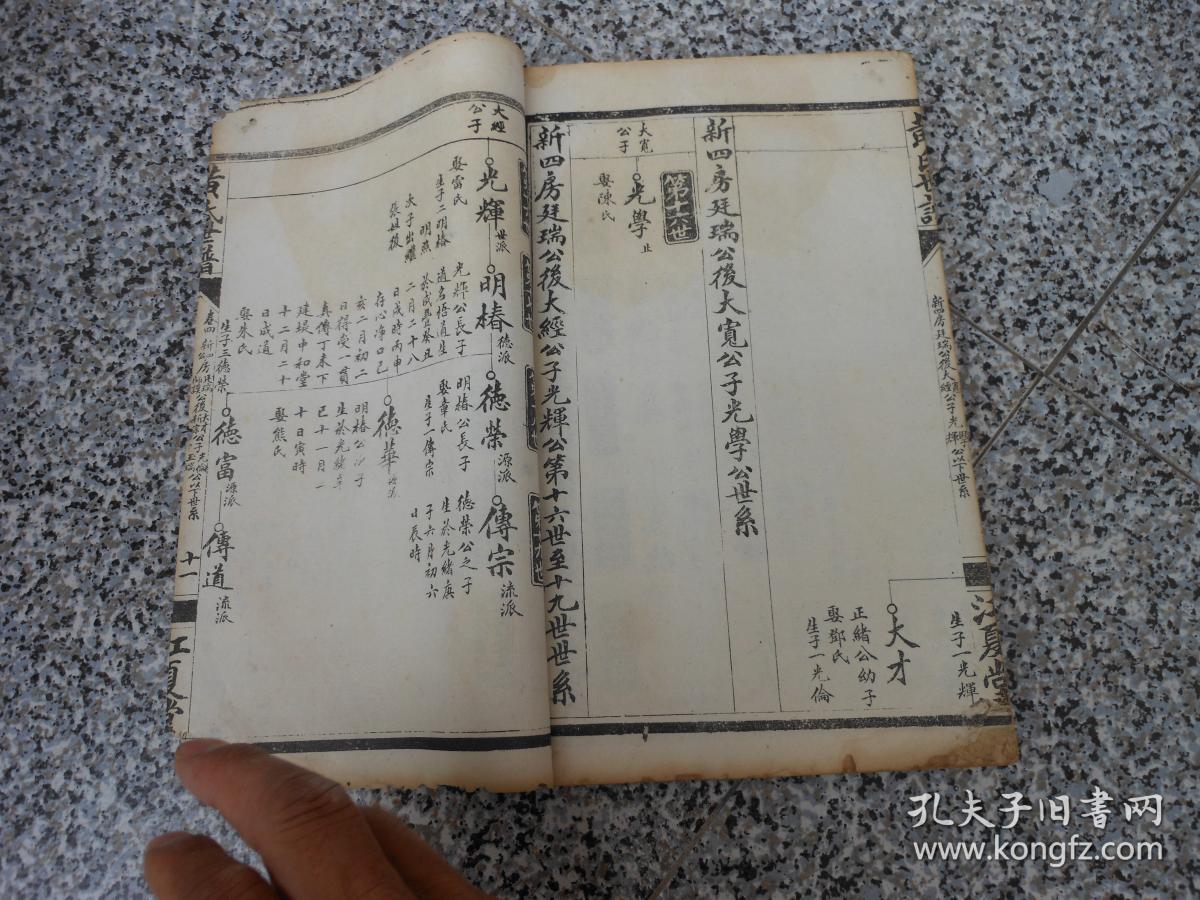 江夏堂
生子一光輝
新四房廷瑞公後大
大才
正緒公幼子
娶鄧氏
生子一光倫
新四房廷瑞公後大寬公子光學公世系
第十六世
大寬
公子
光學
止
娶陳氏
新四房廷瑞公後大經公子光輝公第十六世至十九世世系
大經
公子
光輝
世派
娶雷氏
生子二明椿
明燕
次子出繼
張姓後
明椿
德派
光輝公長子
道名悟通生
於咸豐癸丑
二月二十八
日戌時丙申
存心淨口己
亥二月初二
日得受一貫
真傳丁未下
建堤中和堂
十二月二十
日成道
娶朱氏
生子三德榮
德榮
源派
明椿公長子
娶韋氏
生子一傳宗
傳宗
流派
德榮公之子
生於光緒庚
子六月初六
日辰時
德華
源派
明椿公次子
生於光緒辛
巳十一月二
十日寅時
娶熊氏
德富
源派
傳道
流派
黃氏世譜
卷四
十一
江夏堂
孔夫子旧书网
www.kongfz.com